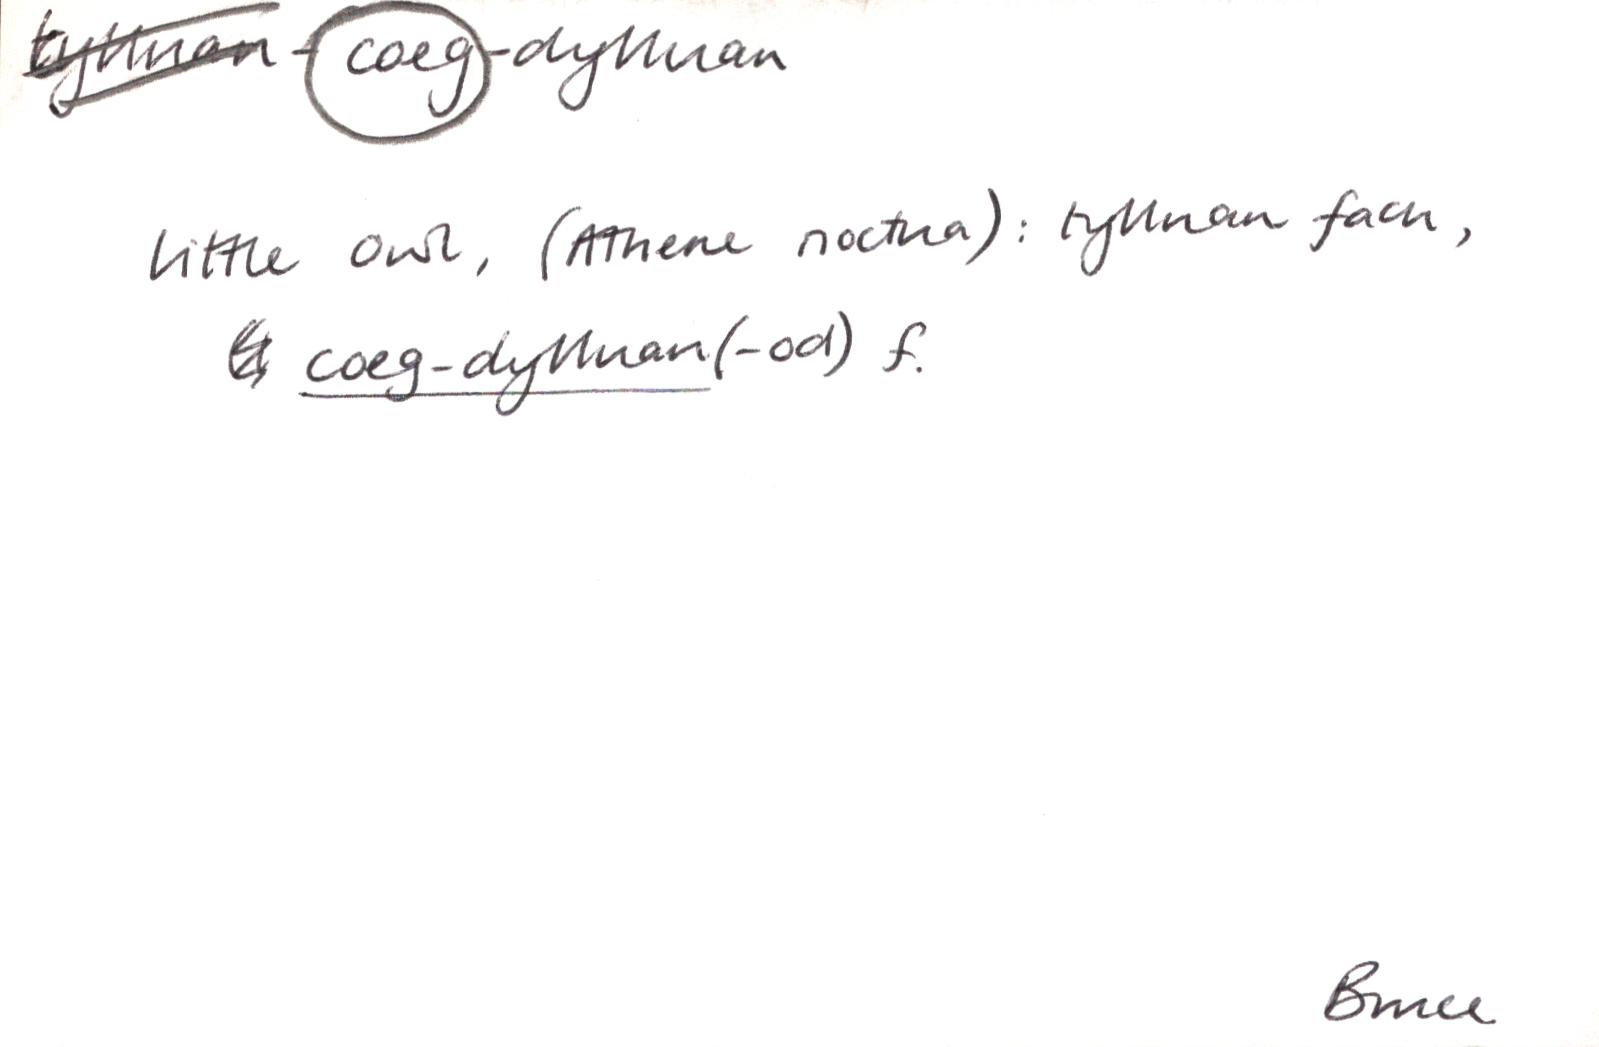 tylluan - coeg-dylluan
little owl, (Athene noctua): tylluan fach,
coeg-dylluan (-od) f.
Bruce